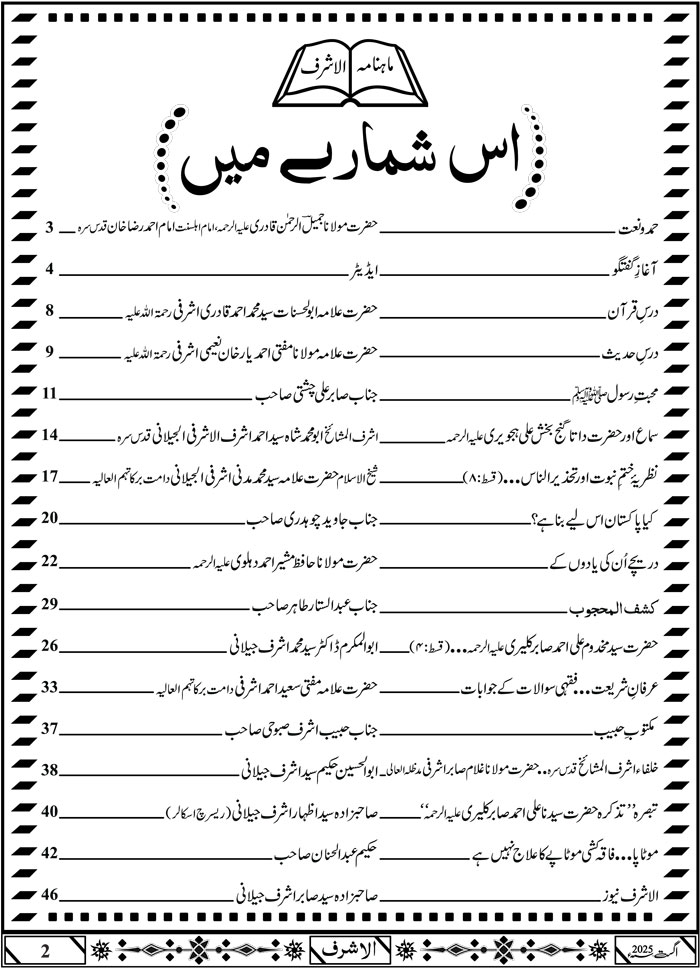 ماہنامہ الاشرف
اس شمارے میں
حمد ونعت حضرت مولانا جمیل الرحمٰن قادری علیہ الرحمہ، امام اہلسنت امام احمد رضا خان قدس سرہ 3
آغازِ گفتگو ایڈیٹر 4
درسِ قرآن حضرت علامہ ابوالحسنات سید محمد احمد قادری اشرفی رحمۃ اللہ علیہ 8
درسِ حدیث حضرت علامہ مولانا مفتی احمد یار خان نعیمی اشرفی رحمۃ اللہ علیہ 9
محبتِ رسول ﷺ جناب صابر علی چشتی صاحب 11
سماع اور حضرت داتا گنج بخش علی ہجویری علیہ الرحمہ اشرف المشائخ ابو محمد شاہ سید احمد اشرف الاشرفی الجیلانی قدس سرہ 14
نظریۂ ختمِ نبوت اور تحذیر الناس...(قسط:۸) شیخ الاسلام حضرت علامہ سید محمد مدنی اشرفی الجیلانی دامت برکاتہم العالیہ 17
کیا پاکستان اس لیے بنا ہے؟ جناب جاوید چوہدری صاحب 20
دریچے اُن کی یادوں کے حضرت مولانا حافظ مشیر احمد دہلوی علیہ الرحمہ 22
کشف المحجوب جناب عبدالستار طاہر صاحب 29
حضرت سید مخدوم علی احمد صابر کلیری علیہ الرحمہ...(قسط:۴) ابوالمکرم ڈاکٹر سید محمد اشرف جیلانی 26
عرفانِ شریعت...فقہی سوالات کے جوابات حضرت علامہ مفتی سعید احمد اشرفی دامت برکاتہم العالیہ 33
مکتوبِ حبیب جناب حبیب اشرف صبوحی صاحب 37
خلفاء اشرف المشائخ قدس سرہ..حضرت مولانا غلام صابر اشرفی مدظلہ العالی ابوالحسین حکیم سید اشرف جیلانی 38
تبصرہ "تذکرہ حضرت سیدنا علی احمد صابر کلیری علیہ الرحمہ" صاحبزادہ سید اظہار اشرف جیلانی (ریسرچ اسکالر) 40
موٹاپا...فاقہ کشی موٹاپے کا علاج نہیں ہے حکیم عبدالحنان صاحب 42
الاشرف نیوز صاحبزادہ سید صابر اشرف جیلانی 46
اگست 2025ء الاشرف 2